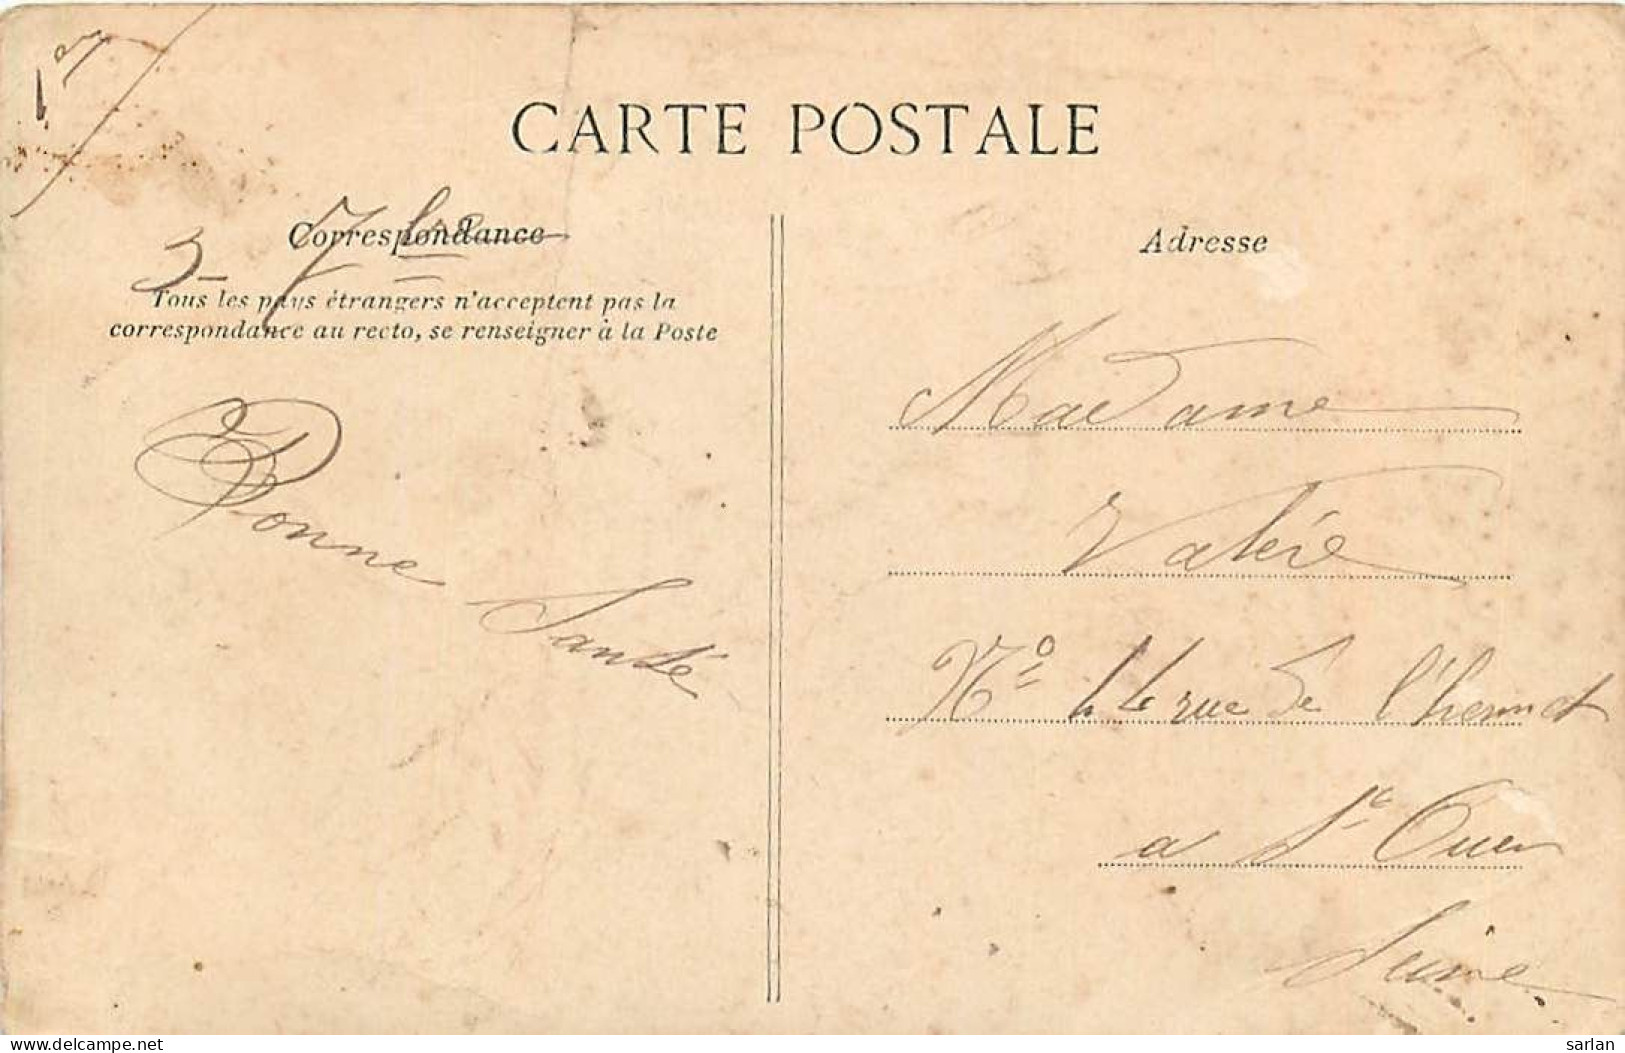 17
CARTE POSTALE
Correspondance
3- 7bre
Tous les pays étrangers n'acceptent pas la
correspondance au recto, se renseigner à la Poste
Bonne
Santé
Adresse
Madame
Valérie
N° rue de l'hermet
a St Ouen
Seine
sarlan